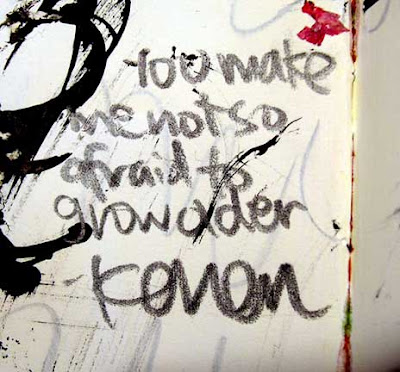 You make
me not so
afraid to
grow older
-Keuon